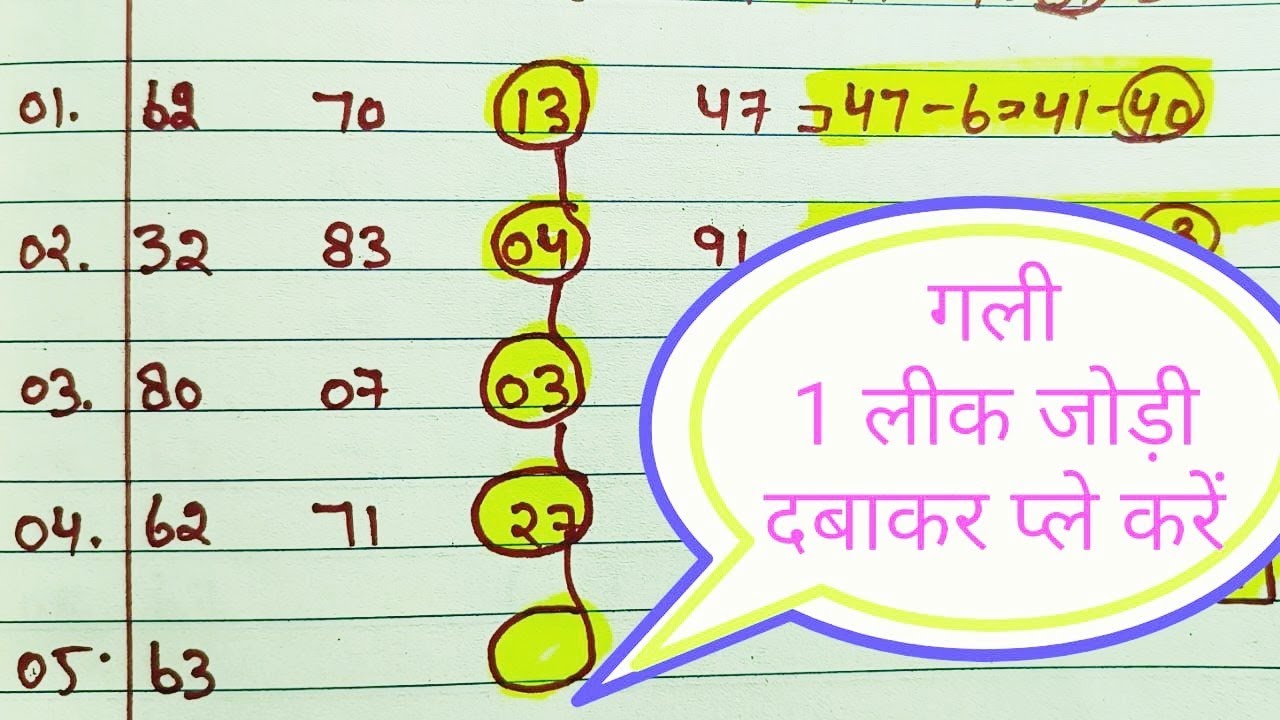 01. 62 70 13 47 ⊐ 47 - 6 ⊐ 41 - 40
02. 32 83 04 91 3
03. 80 07 03
04. 62 71 27
05. 63
गली
1 लीक जोड़ी
दबाकर प्ले करें